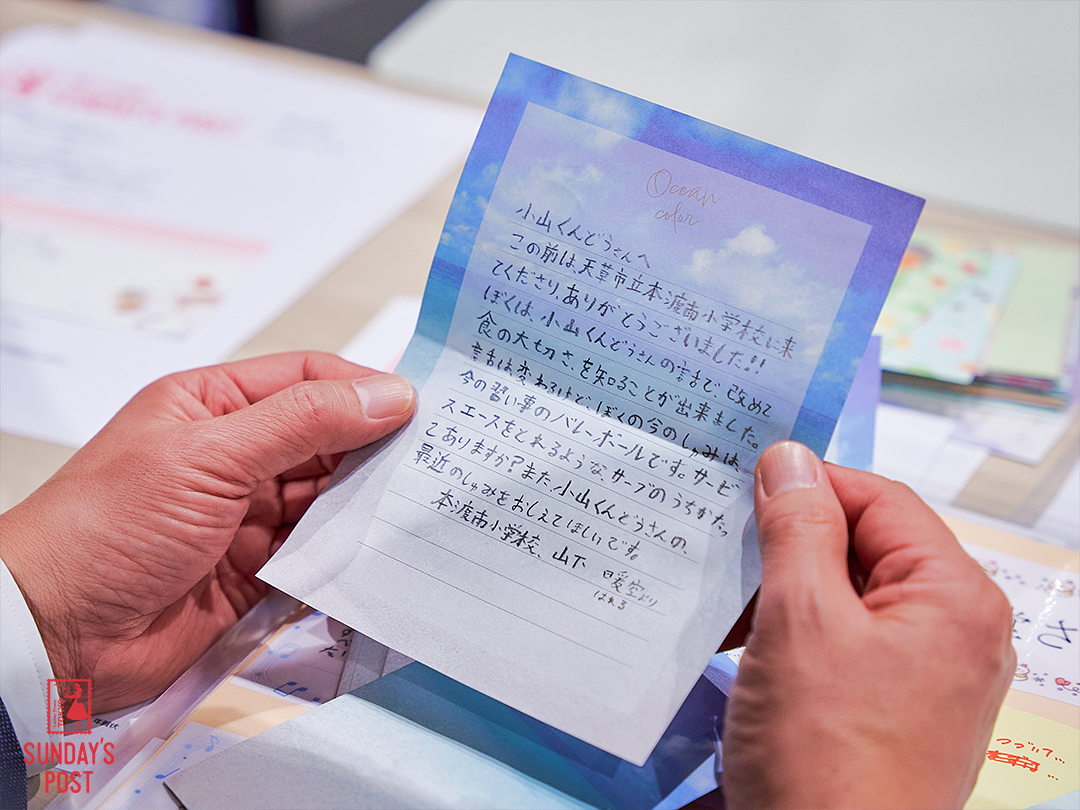 Ocean
color
小山くんどうさんへ
この前は、天草市立本渡南小学校に来
てくださり、ありがとうございました!!
ぼくは、小山くんどうさんの話で、改めて
食の大切さを知ることが出来ました。
話は変わるけど、ぼくの今のしゅみは、
今の習い事のバレーボールです。サービ
スエースをとれるような、サーブのうちかたっ
てありますか?また、小山くんどうさんの、
最近のしゅみをおしえてほしいです。
本渡南小学校、山下 暖空より
はれる
SUNDAY'S
POST
TOKYO
年賀状
つづいて…